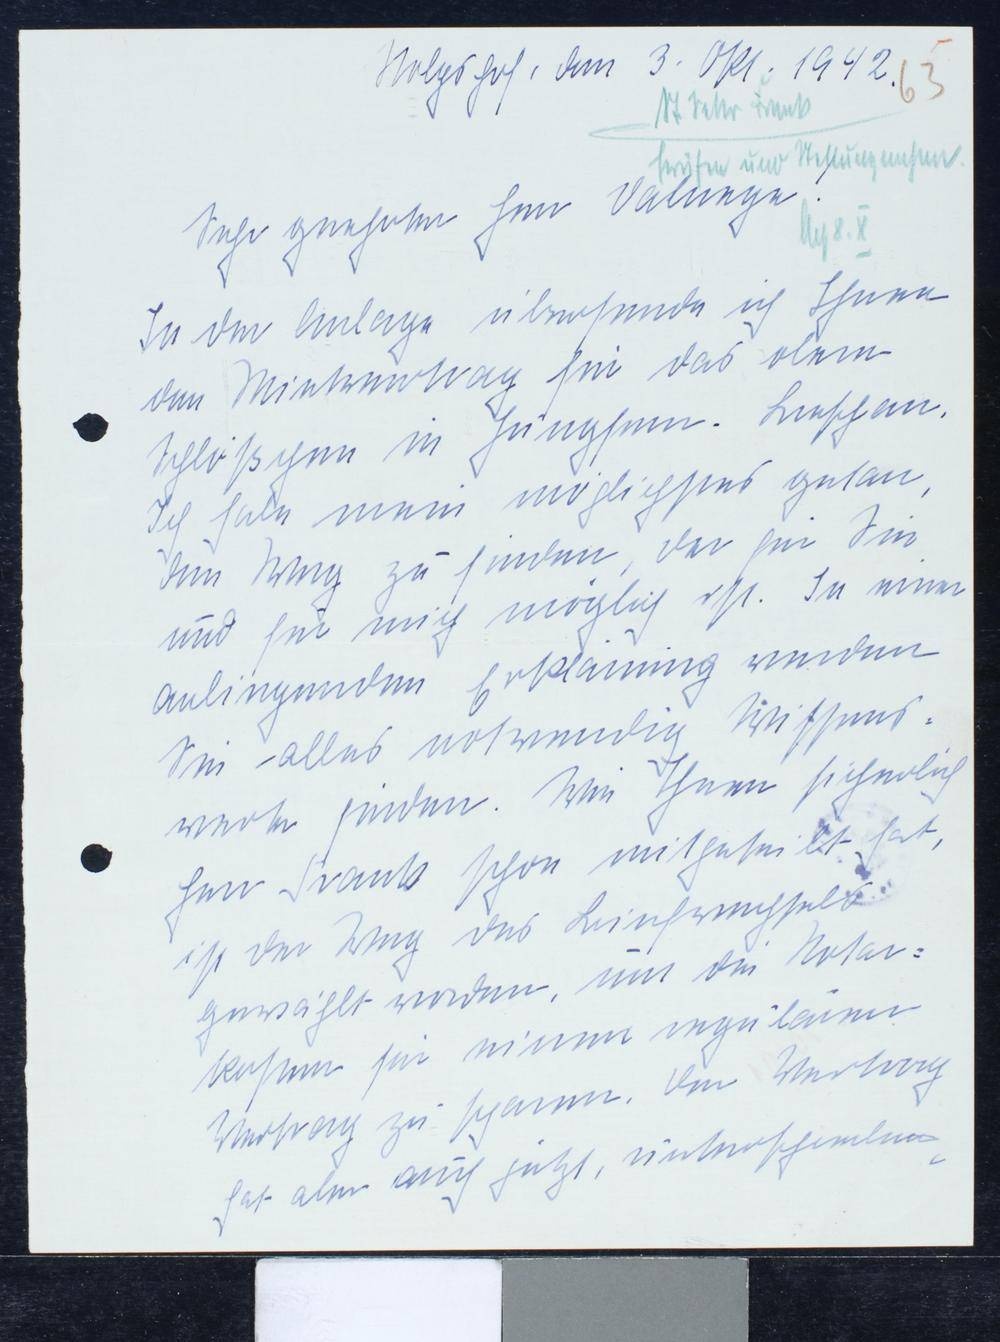 den 3. Okt. 1942.
63
Frank
und Stellungnahme.
8. X
Sehr geehrter Herr
In der Anlage übersende ich Ihnen
den Mietvertrag für das obere
Schlößchen in Jungfern-Breschan.
Ich habe mein möglichstes getan,
den Weg zu finden, der für Sie
und für mich möglich ist. In einer
anliegenden Erklärung werden
Sie alles notwendig Wissens-
werte finden. Wie Ihnen sicherlich
Herr Frank schon mitgeteilt hat,
ist der Weg des Briefwechsels
gewählt worden, um die Notar-
kosten für einen regulären
Vertrag zu sparen. Der Vertrag
hat aber auch jetzt, unterschrieben